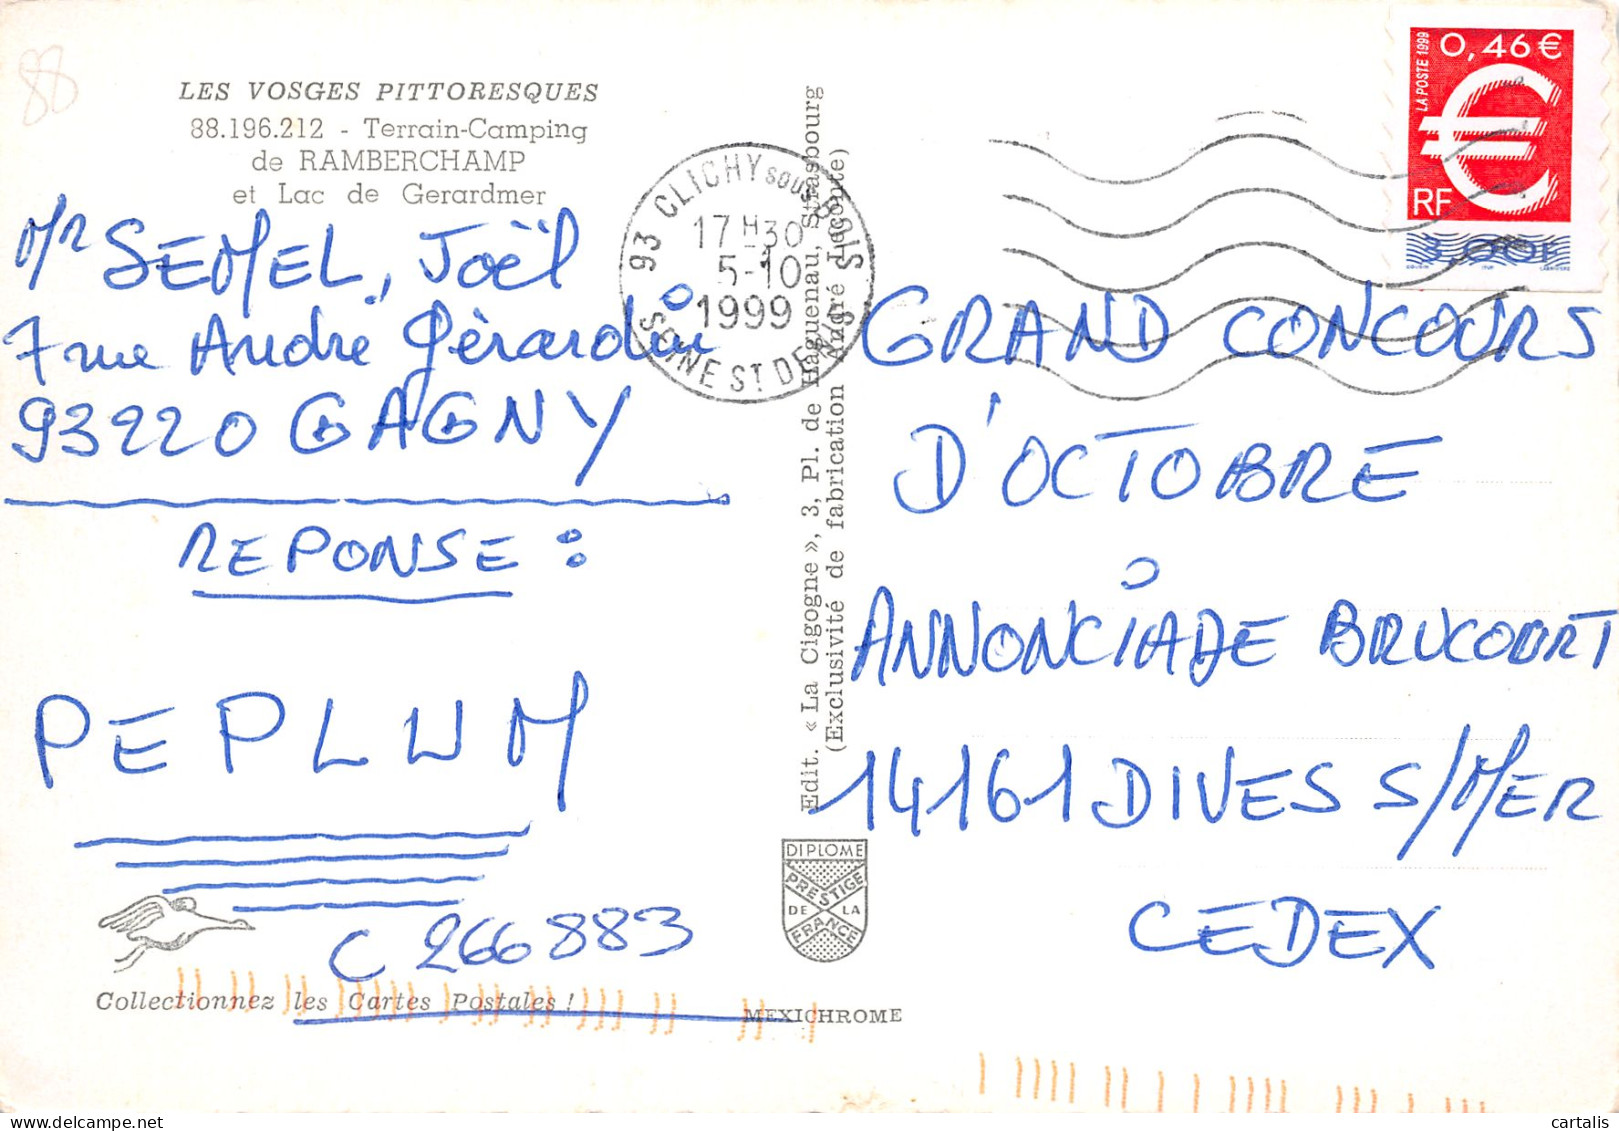 88
LES VOSGES PITTORESQUES
88.196.212 - Terrain-Camping
de RAMBERCHAMP
et Lac de Gerardmer
Mr SEMEL, Joël
7 rue André Gérardin
93220 GAGNY
REPONSE :
PEPLUM
C 266883
Collectionnez les Cartes Postales !
MEXICHROME
Edit. « La Cigogne », 3, Pl. de Haguenau, Strasbourg
(Exclusivité de fabrication André Leconte)
DIPLOME
PRESTIGE
DE LA
FRANCE
93 CLICHY SOUS BOIS
17 H 30
5-10
1999
SEINE ST DENIS
LA POSTE 1999
0,46 €
€
RF
3,00F
GRAND CONCOURS
D'OCTOBRE
ANNONCIADE BRUCOURT
14161 DIVES S/MER
CEDEX
cartalis